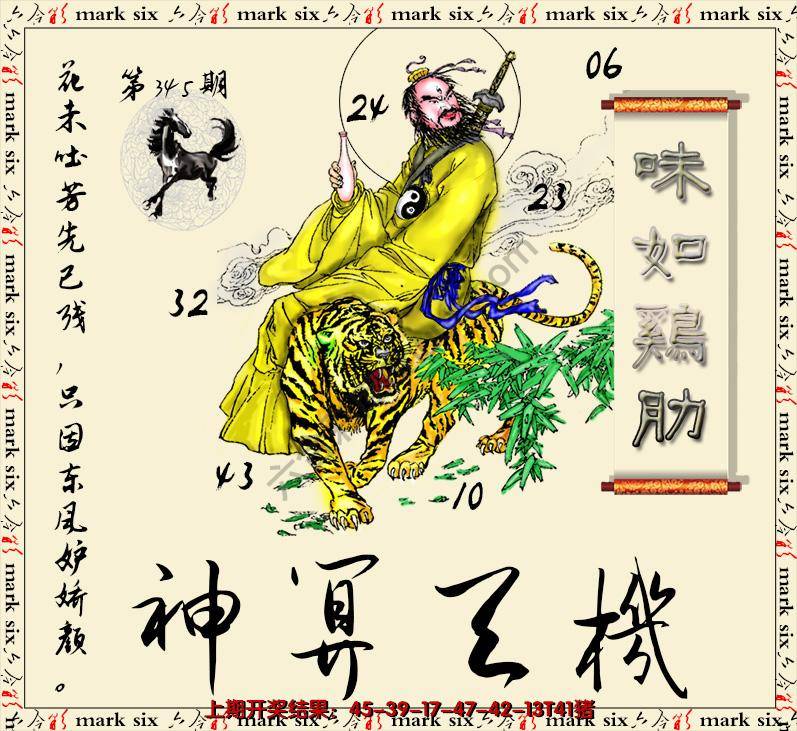 mark six 六合彩 mark six 六合彩 mark six 六合彩 mark six 六合彩 mark six
花未吐芳先已残，只因东风妒娇颜。
第345期
24
06
23
32
43
10
味如鷄肋
神算天機
上期开奖结果：45-39-17-47-42-13T41猪
mark six 六合彩 mark six 六合彩 mark six 六合彩 mark six 六合彩 mark six